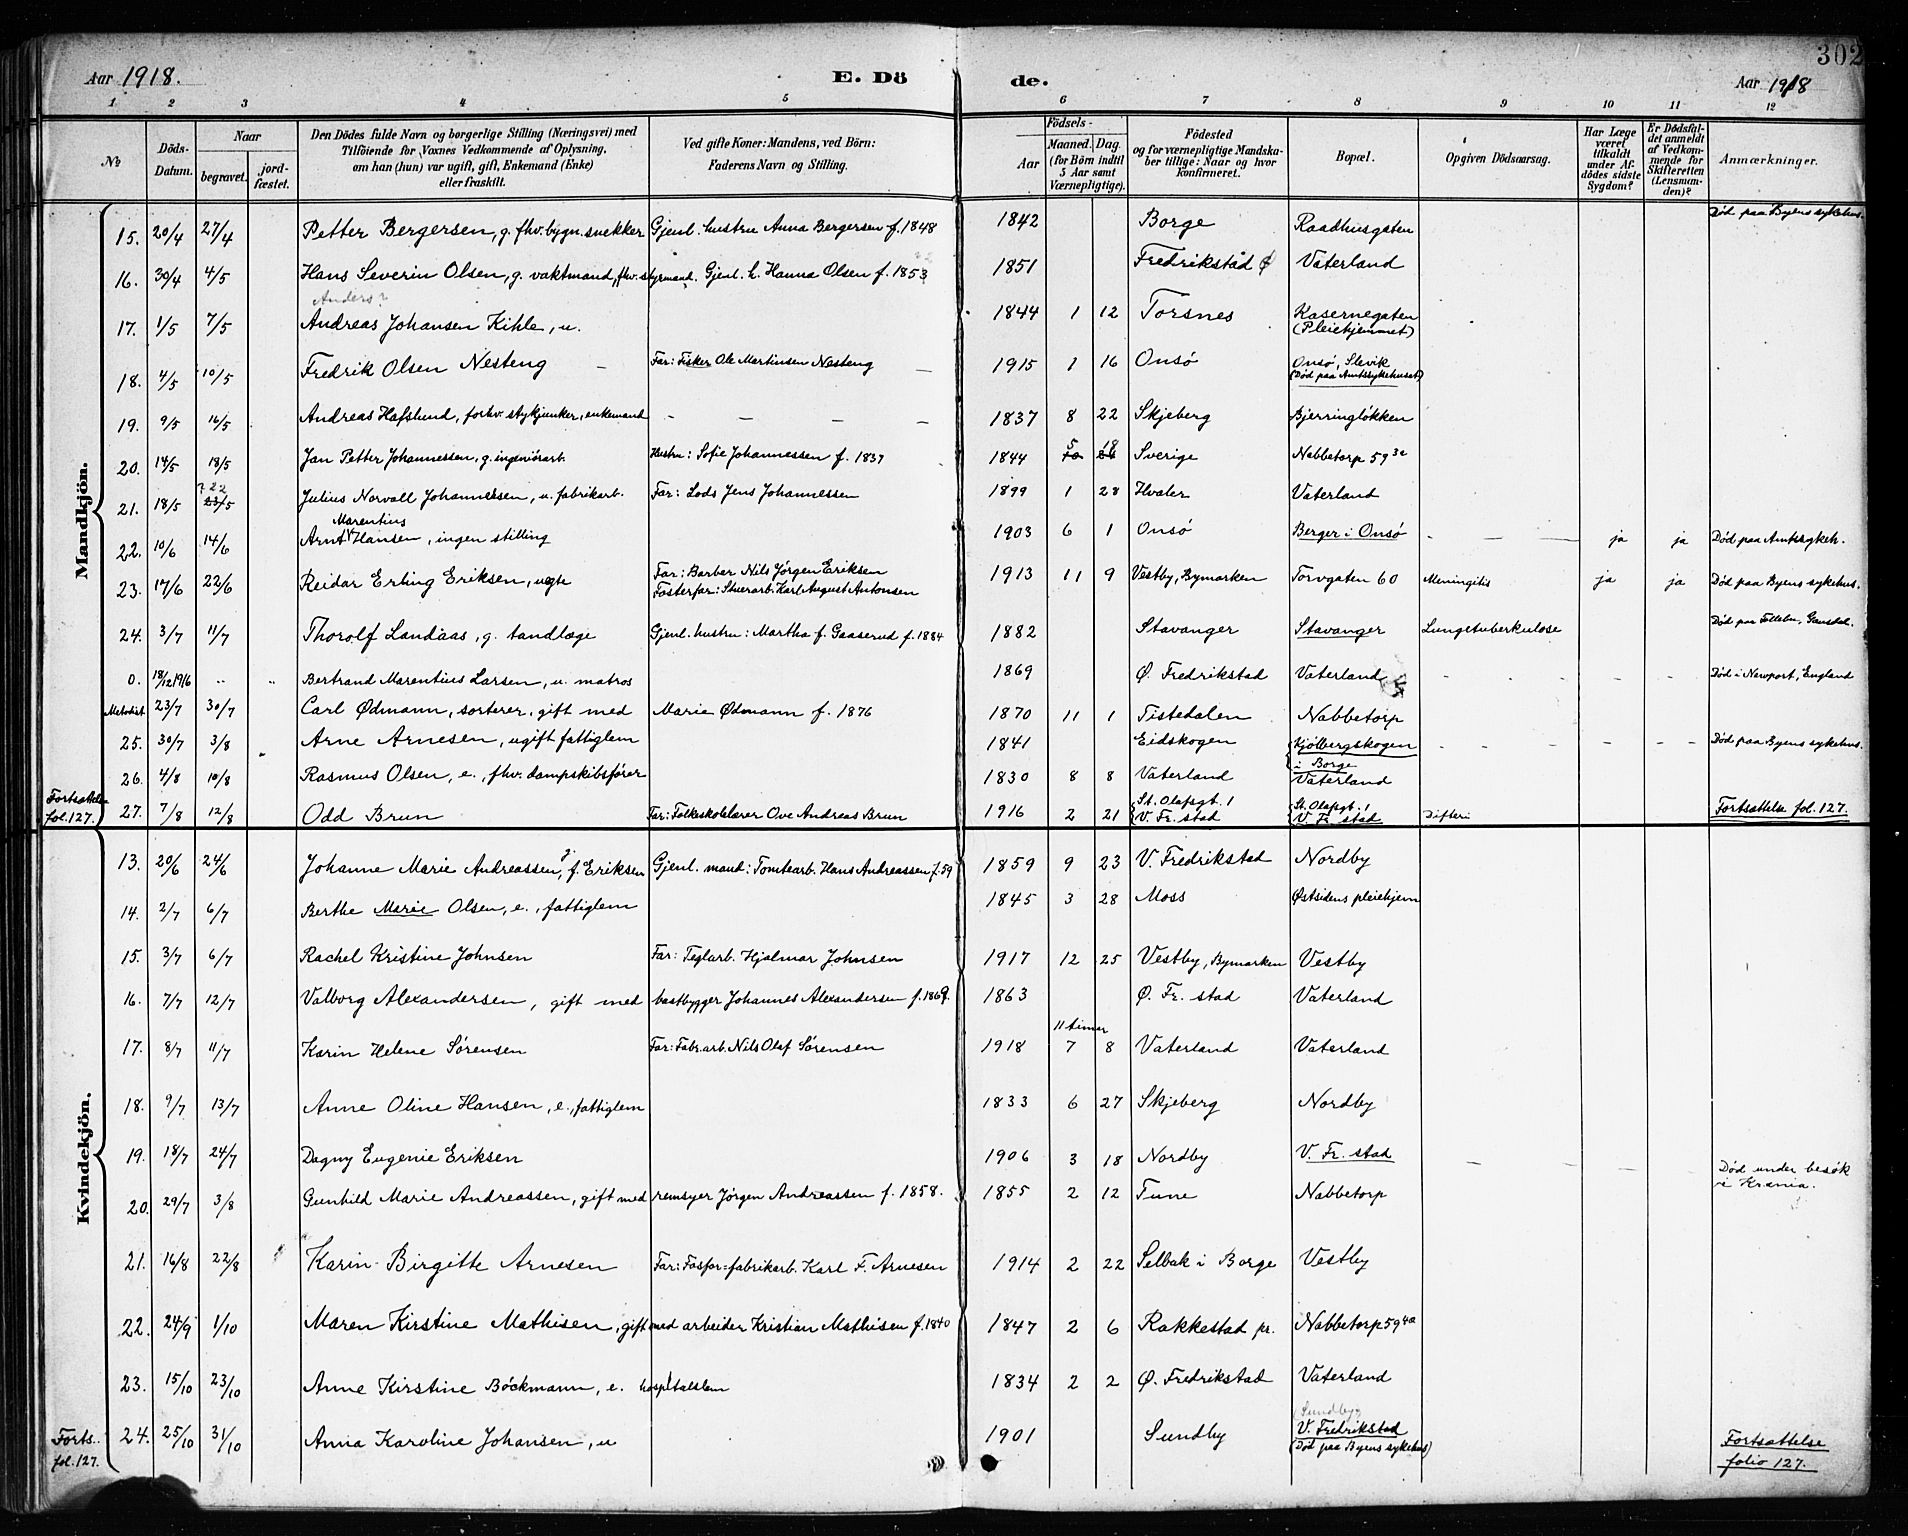 302
Aar 1918. E. Dö de. Aar 1918
1 2 3 4 5 6 7 8 9 10 11 12
No Döds-Datum. Naar begravet. jord-fæstet. Den Dödes fulde Navn og borgerlige Stilling (Næringsvei) med Tilföiende for Voxnes Vedkommende af Oplysning, om han (hun) var ugift, gift, Enkemand (Enke) eller fraskilt. Ved gifte Koner: Mandens, ved Börn: Faderens Navn og Stilling. Födsels- Aar Maaned. Dag. (for Börn indtil 5 Aar samt Værnepligtige). Födested og for værnepligtige Mandskaber tillige: Naar og hvor konfirmeret. Bopæl. Opgiven Dödsaarsag. Har Læge været tilkaldt under Afdödes sidste Sygdom? Er Dödsfaldet anmeldt af Vedkommende for Skifteretten (Lensmanden)? Anmærkninger.
Mandkjön.
15. 20/4 27/4 Petter Bergersen, g. fhv. bygn. snekker Gjenl. hustru Anna Bergersen f. 1848 1842 Borge Raadhusgaten Död paa Byens sykehus.
16. 30/4 4/5 Hans Severin Olsen, g. vaktmand, fhv. styrmand. Gjenl. h. Hanna Olsen f. 1853 1851 Fredrikstad Ø Vaterland
Anders?
17. 1/5 7/5 Andreas Johansen Kihle, u. 1844 1 12 Torsnes Kasernegaten (Pleiehjemmet)
18. 4/5 10/5 Fredrik Olsen Nesteng Far: Fisker Ole Martinsen Nesteng 1915 1 16 Onsö Onsö, Slevik (Död paa Amtssykehuset)
19. 9/5 16/5 Andreas Hafslund, forhv. stykjunker, enkemand 1837 8 22 Skjeberg Bjerringlökken
20. 14/5 18/5 Jan Petter Johannessen, g. ingeniörarb. Hustru: Sofie Johannessen f. 1837 1844 5 18 Sverige Nabbetorp 59
21. 18/5 ? 22 23/5 Julius Norvall Johannesen, u. fabrikarb. Far: Lods Jens Johannessen 1899 1 28 Hvaler Vaterland
Marentius
22. 10/6 14/6 Arnt Hansen, ingen stilling 1903 6 1 Onsö Berger i Onsö ja ja Död paa Amtssykeh.
23. 17/6 22/6 Reidar Erling Eriksen, uegte Far: Barber Nils Jörgen Eriksen Fosterfar: Stuerarb. Karl August Antonsen 1913 11 9 Vestby, Bymarken Torvgaten 60 Meningitis ja ja Död paa Byens sykehus.
24. 3/7 11/7 Thorolf Landaas, g. tandlæge Gjenl. hustru: Martha f. Gaaserud f. 1884 1882 Stavanger Stavanger Lungetuberkulose Död paa Gausdal.
0. 18/12 1916 Bertrand Marentius Larsen, u. matros 1869 Ø. Fredrikstad Vaterland Död i Newport, England
Metodist 23/7 30/7 Carl Ødmann, sorterer, gift med Marie Ødmann f. 1876 1870 11 1 Tistedalen Nabbetorp
25. 30/7 3/8 Arne Arnesen, ugift fattiglem 1841 Eidskogen Kjölbergskogen i Borge Död paa Byens sykehus.
26. 4/8 10/8 Rasmus Olsen, e., fhv. dampskibsförer 1830 8 8 Vaterland Vaterland
Fortsættelse fol. 127. 27. 7/8 12/8 Odd Brun Far: Folkeskolelærer Ove Andreas Brun 1916 2 21 St. Olafsgt. 1 V. Fr. stad St. Olafsgt. 1 V. Fr. stad Difteri Fortsættelse fol. 127.
Kvindekjön.
13. 20/6 24/6 Johanne Marie Andreassen, g. f. Eriksen Gjenl. mand: Tomtearb. Hans Andreassen f. 59 1859 9 23 V. Fredrikstad Nordby
14. 2/7 6/7 Berthe Marie Olsen, e., fattiglem 1845 3 28 Moss Østsidens pleiehjem
15. 3/7 6/7 Rachel Kristine Johnsen Far: Teglarb. Hjalmar Johnsen 1917 12 25 Vestby, Bymarken Vestby
16. 7/7 12/7 Valborg Alexandersen, gift med baatbygger Johannes Alexandersen f. 1869. 1863 Ø. Fr. stad Vaterland
11 timer
17. 8/7 11/7 Karin Helene Sörensen Far: Fabr. arb. Nils Olaf Sörensen 1918 7 8 Vaterland Vaterland
18. 9/7 13/7 Anne Oline Hansen, e., fattiglem 1833 6 27 Skjeberg Nordby
19. 18/7 24/7 Dagny Eugenie Eriksen 1906 3 18 Nordby V. Fr. stad Död under besök i Krania.
20. 29/7 3/8 Gunhild Marie Andreassen, gift med remsyer Jörgen Andreassen f. 1858. 1855 2 12 Tune Nabbetorp
21. 16/8 22/8 Karin Birgitte Arnesen Far: Fosfor=fabrikarb. Karl F. Arnesen 1914 2 22 Selbak i Borge Vestby
22. 24/9 1/10 Maren Kirstine Mathisen, gift med arbeider Kristian Mathisen f. 1840 1847 2 6 Rakkestad pr. Nabbetorp 59 40
23. 15/10 23/10 Anne Kirstine Böckmann, e. hospitalslem 1834 2 2 Ø. Fredrikstad Vaterland
Sundby?
Forts. fol. 127. 24. 25/10 31/10 Anna Karoline Johansen, u 1901 Sundby V. Fredrikstad (Död paa Byens sykehus) Fortsættelse folio 127.